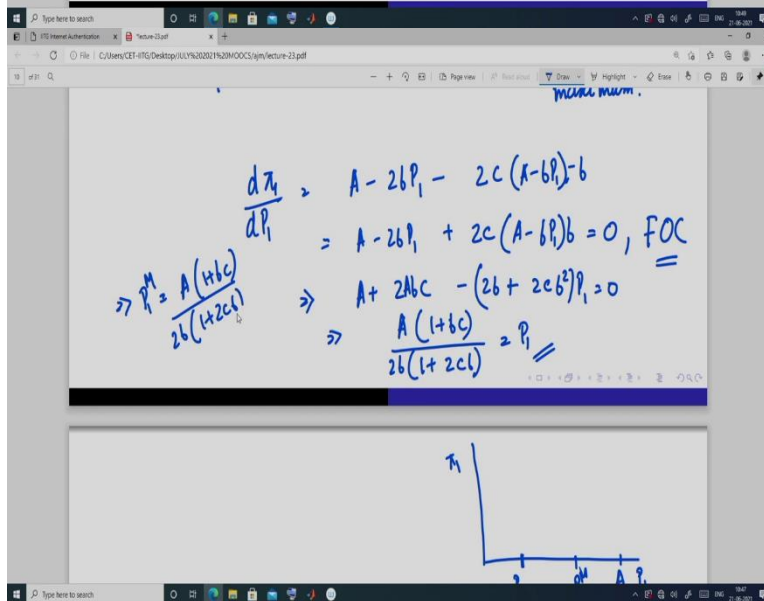 Type here to search
10:48
ENG
21-06-2021
IITG Internet Authentication
lecture-23.pdf
File | C:/Users/CET-IITG/Desktop/JULY%202021%20MOOCS/ajm/lecture-23.pdf
10 of 31
Page view
Read aloud
Draw
Highlight
Erase
maximum.
dπ₁/dP₁ = A - 2bP₁ - 2c(A-bP₁)-b
= A - 2bP₁ + 2c(A-bP₁)b = 0, FOC
⇒ A + 2Abc - (2b + 2cb²)P₁ = 0
⇒ A(1+bc)/2b(1+2cb) = P₁
⇒ P₁ᴹ = A(1+bc)/2b(1+2cb)
π₁
Pᴹ A P₁
Type here to search
10:47
ENG
21-06-2021